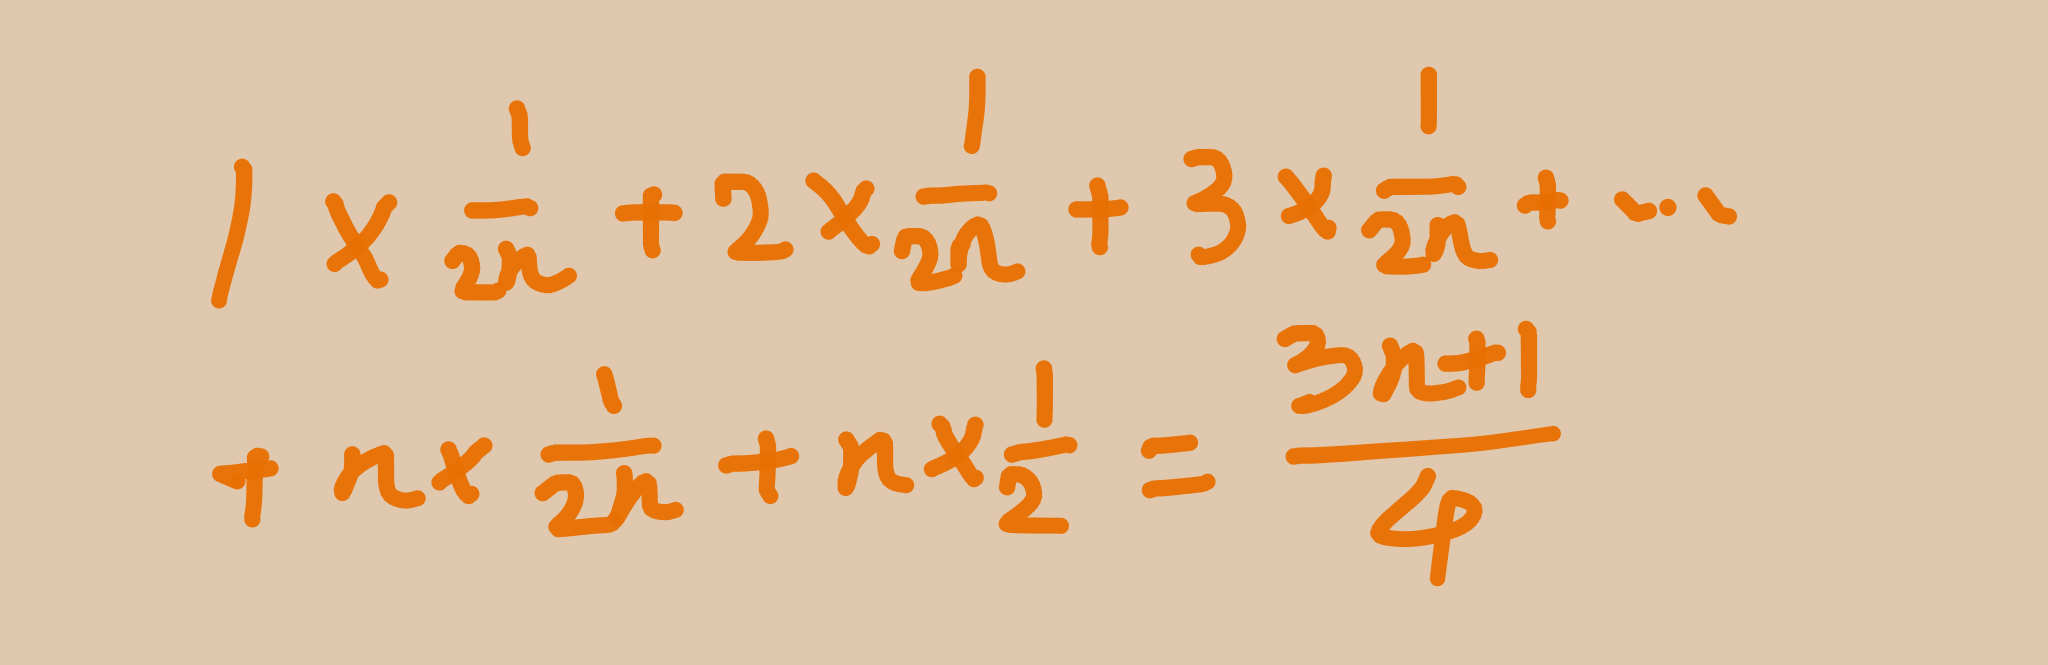 1 × 1/2n + 2 × 1/2n + 3 × 1/2n + ...
+ n × 1/2n + n × 1/2 = (3n+1)/4